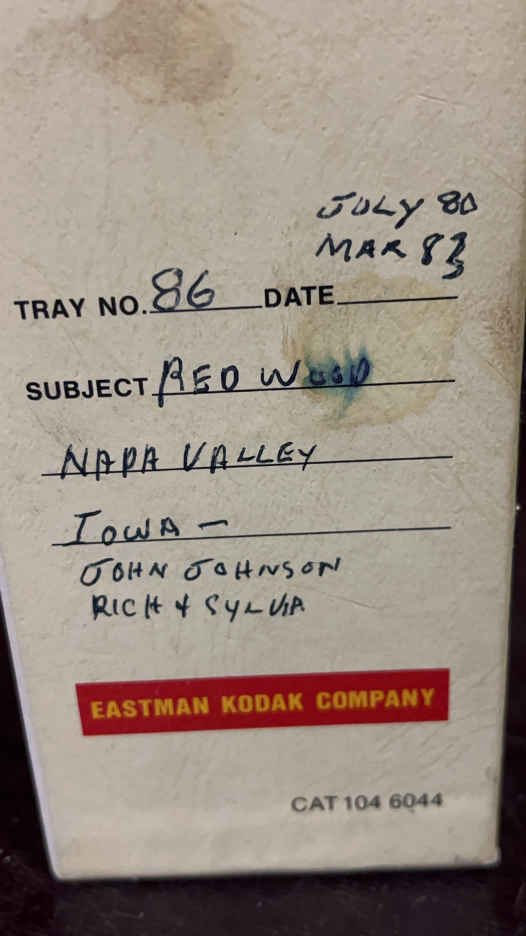 JULY 80
MAR 83
TRAY NO. 86 DATE
SUBJECT RED WOOD
NAPA VALLEY
IOWA –
JOHN JOHNSON
RICH & SYLVIA
EASTMAN KODAK COMPANY
CAT 104 6044